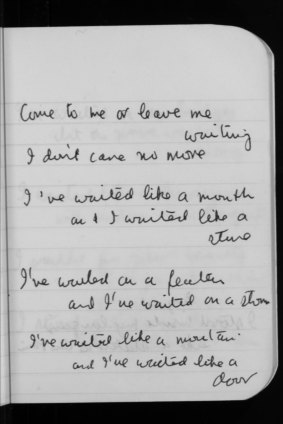 Come to me or leave me
waiting
I don't care no more
I've waited like a month
and I waited like a
stone
I've waited on a feather
and I've waited on a stone
I've waited like a mountain
and I've waited like a
door